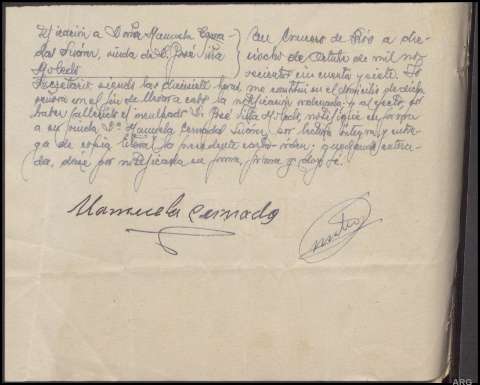 Notificación a Doña Manuela Cerna-
das Suárez, viuda de D. José Silla
Moledo
En Crucero de Rois a die-
ciocho de Octubre de mil no-
vecientos cincuenta y siete. Yo
Secretario siendo las diecisiete horas me constituí en el domicilio de dicha
señora con el fin de llevar a cabo la notificación ordenada; y al efecto, por
haber fallecido el inculpado D. José Silla Moledo, notifiqué en forma
a su viuda Dª Manuela Cernadas Suárez, con lectura íntegra y entre-
ga de copia literal la precedente carta-orden; quedando entera-
da, dióse por notificada en forma, firma y doy fé.
Manuela Cernadas